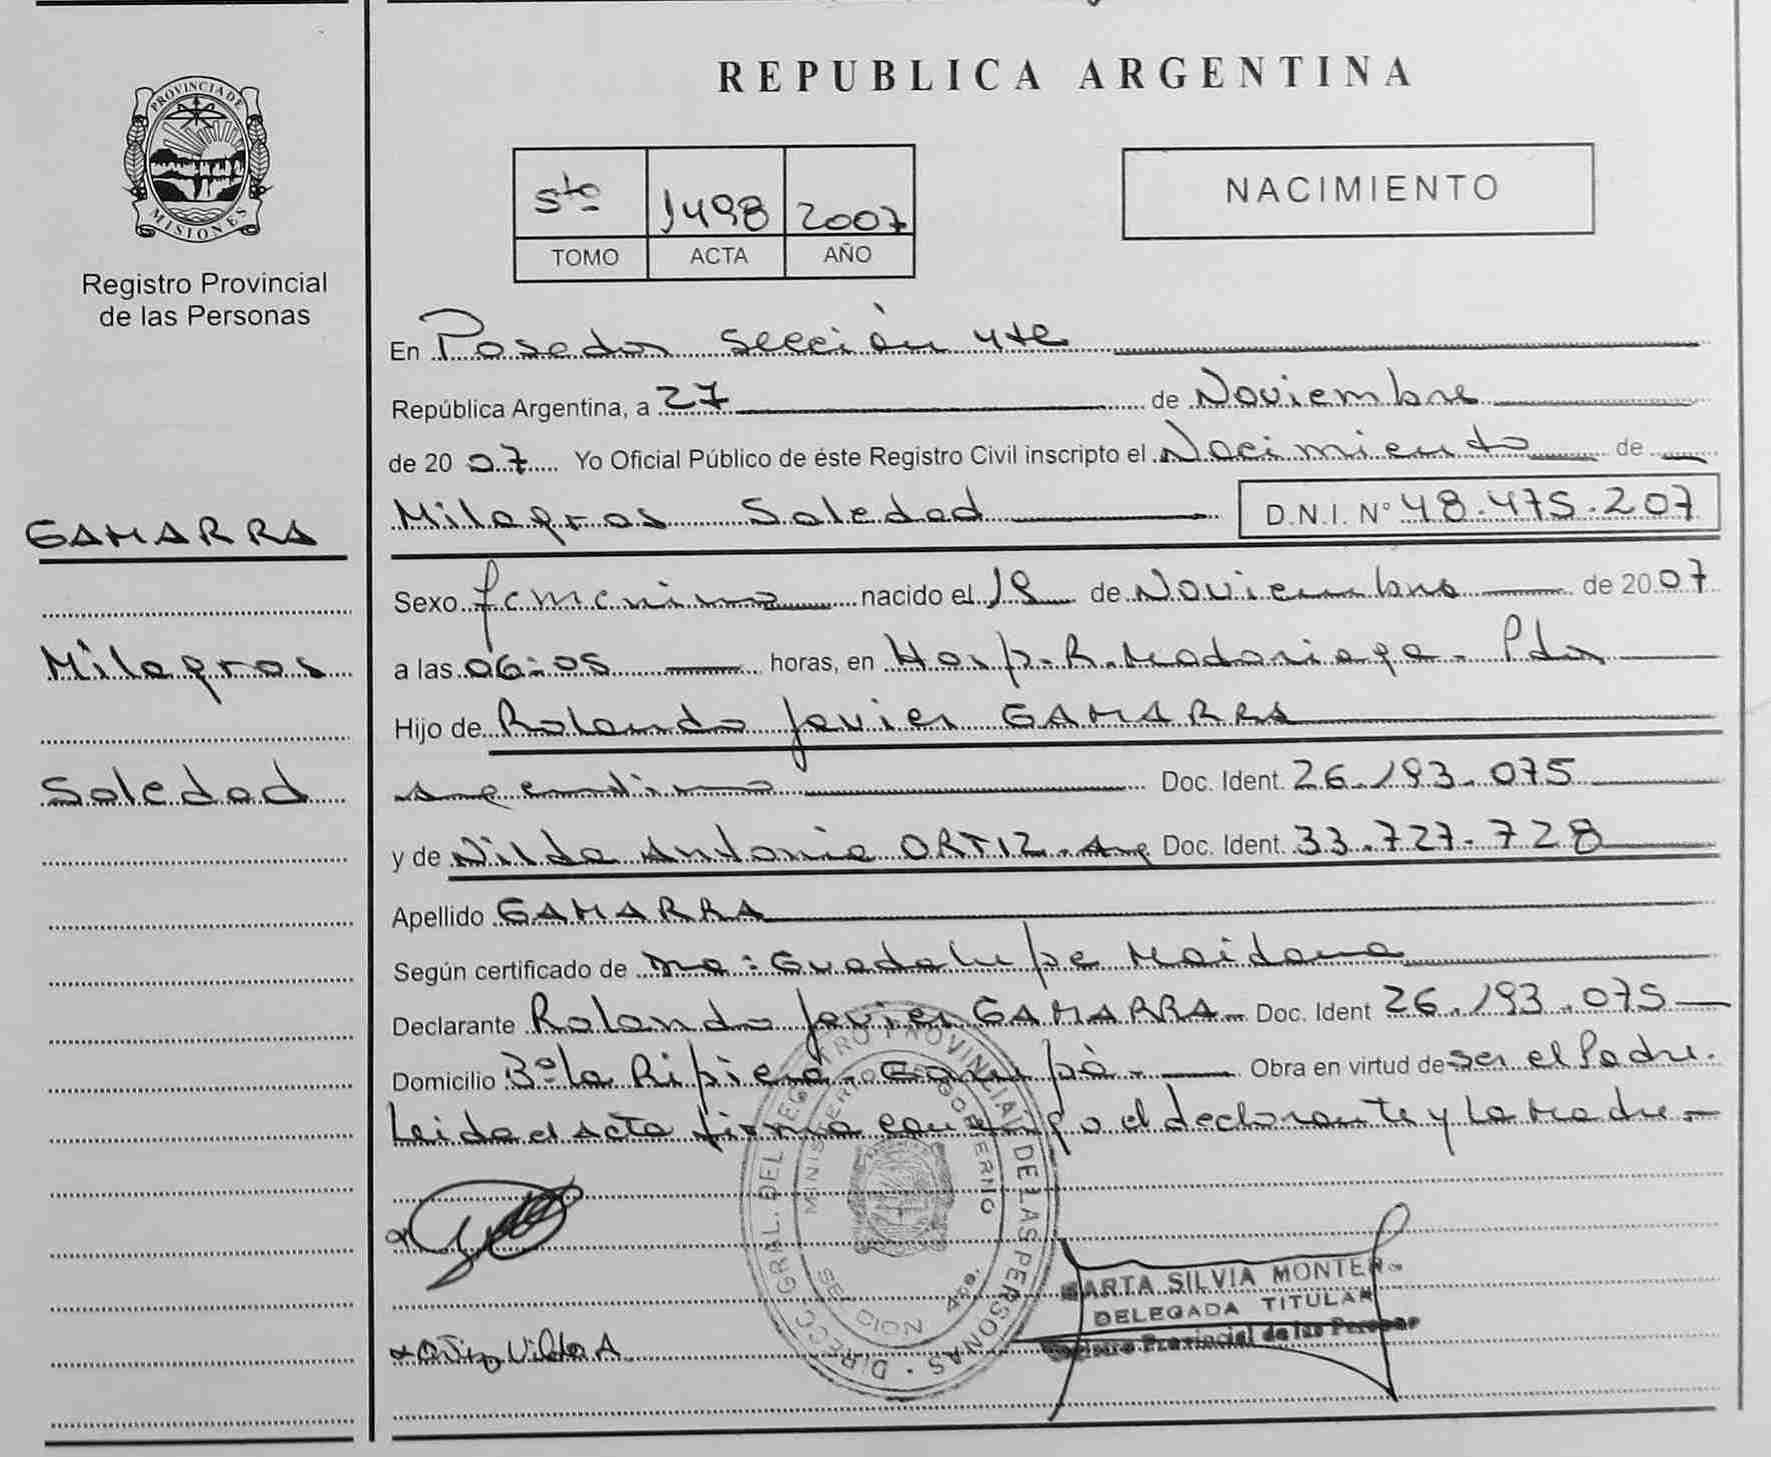 REPUBLICA ARGENTINA
PROVINCIA DE
MISIONES
Registro Provincial
de las Personas
5to 1498 2007
TOMO ACTA AÑO
NACIMIENTO
En Posadas sección 4ta
República Argentina, a 27 de Noviembre
de 2007 Yo Oficial Público de éste Registro Civil inscripto el Nacimiento de
Milagros Soledad D.N.I. N° 48.475.207
GAMARRA
Milagros
Soledad
Sexo femenino nacido el 18 de Noviembre de 2007
a las 06:05 horas, en Hosp. R. Madariaga - Pdas
Hijo de Rolando Javier GAMARRA
Argentino Doc. Ident. 26.193.075
y de Nilda Antonia ORTIZ - Arg Doc. Ident. 33.727.728
Apellido GAMARRA
Según certificado de Guadalupe Maidana
Declarante Rolando Javier GAMARRA - Doc. Ident 26.193.075
Domicilio Bº la Ripiera - Garupá - Obra en virtud de ser el Padre.
Leida el Acta firma conmigo el declarante y la Madre -
DIRECC. GRAL. DEL REGISTRO PROVINCIAL DE LAS PERSONAS
MINISTERIO GOBIERNO
SECCION 4ta.
MARTA SILVIA
DELEGADA TITULAR
Registro Provincial de las Personas
Ortiz Nilda A